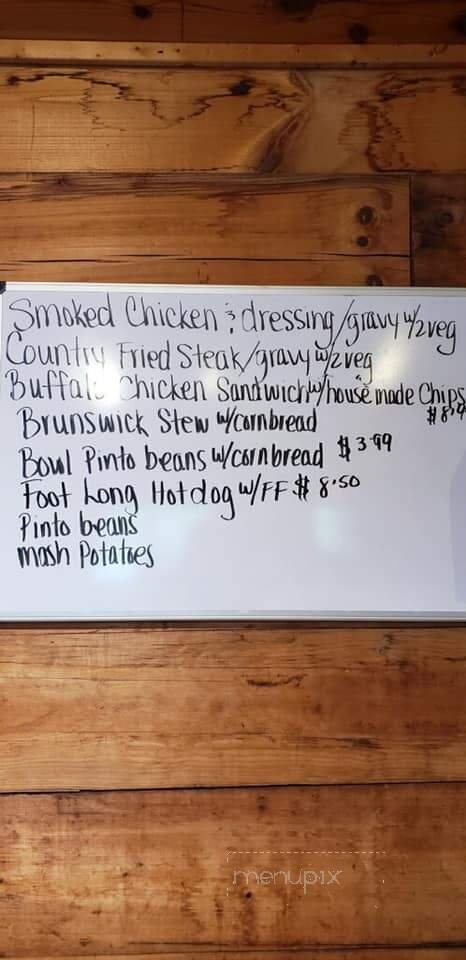 Smoked Chicken & dressing/gravy w/2 veg
Country Fried Steak/gravy w/2 veg
Buffalo Chicken Sandwich w/house made Chips
Brunswick Stew w/cornbread
Bowl Pinto beans w/cornbread $3.99
Foot Long Hotdog w/FF $8.50
Pinto beans
mash Potatoes
menupix